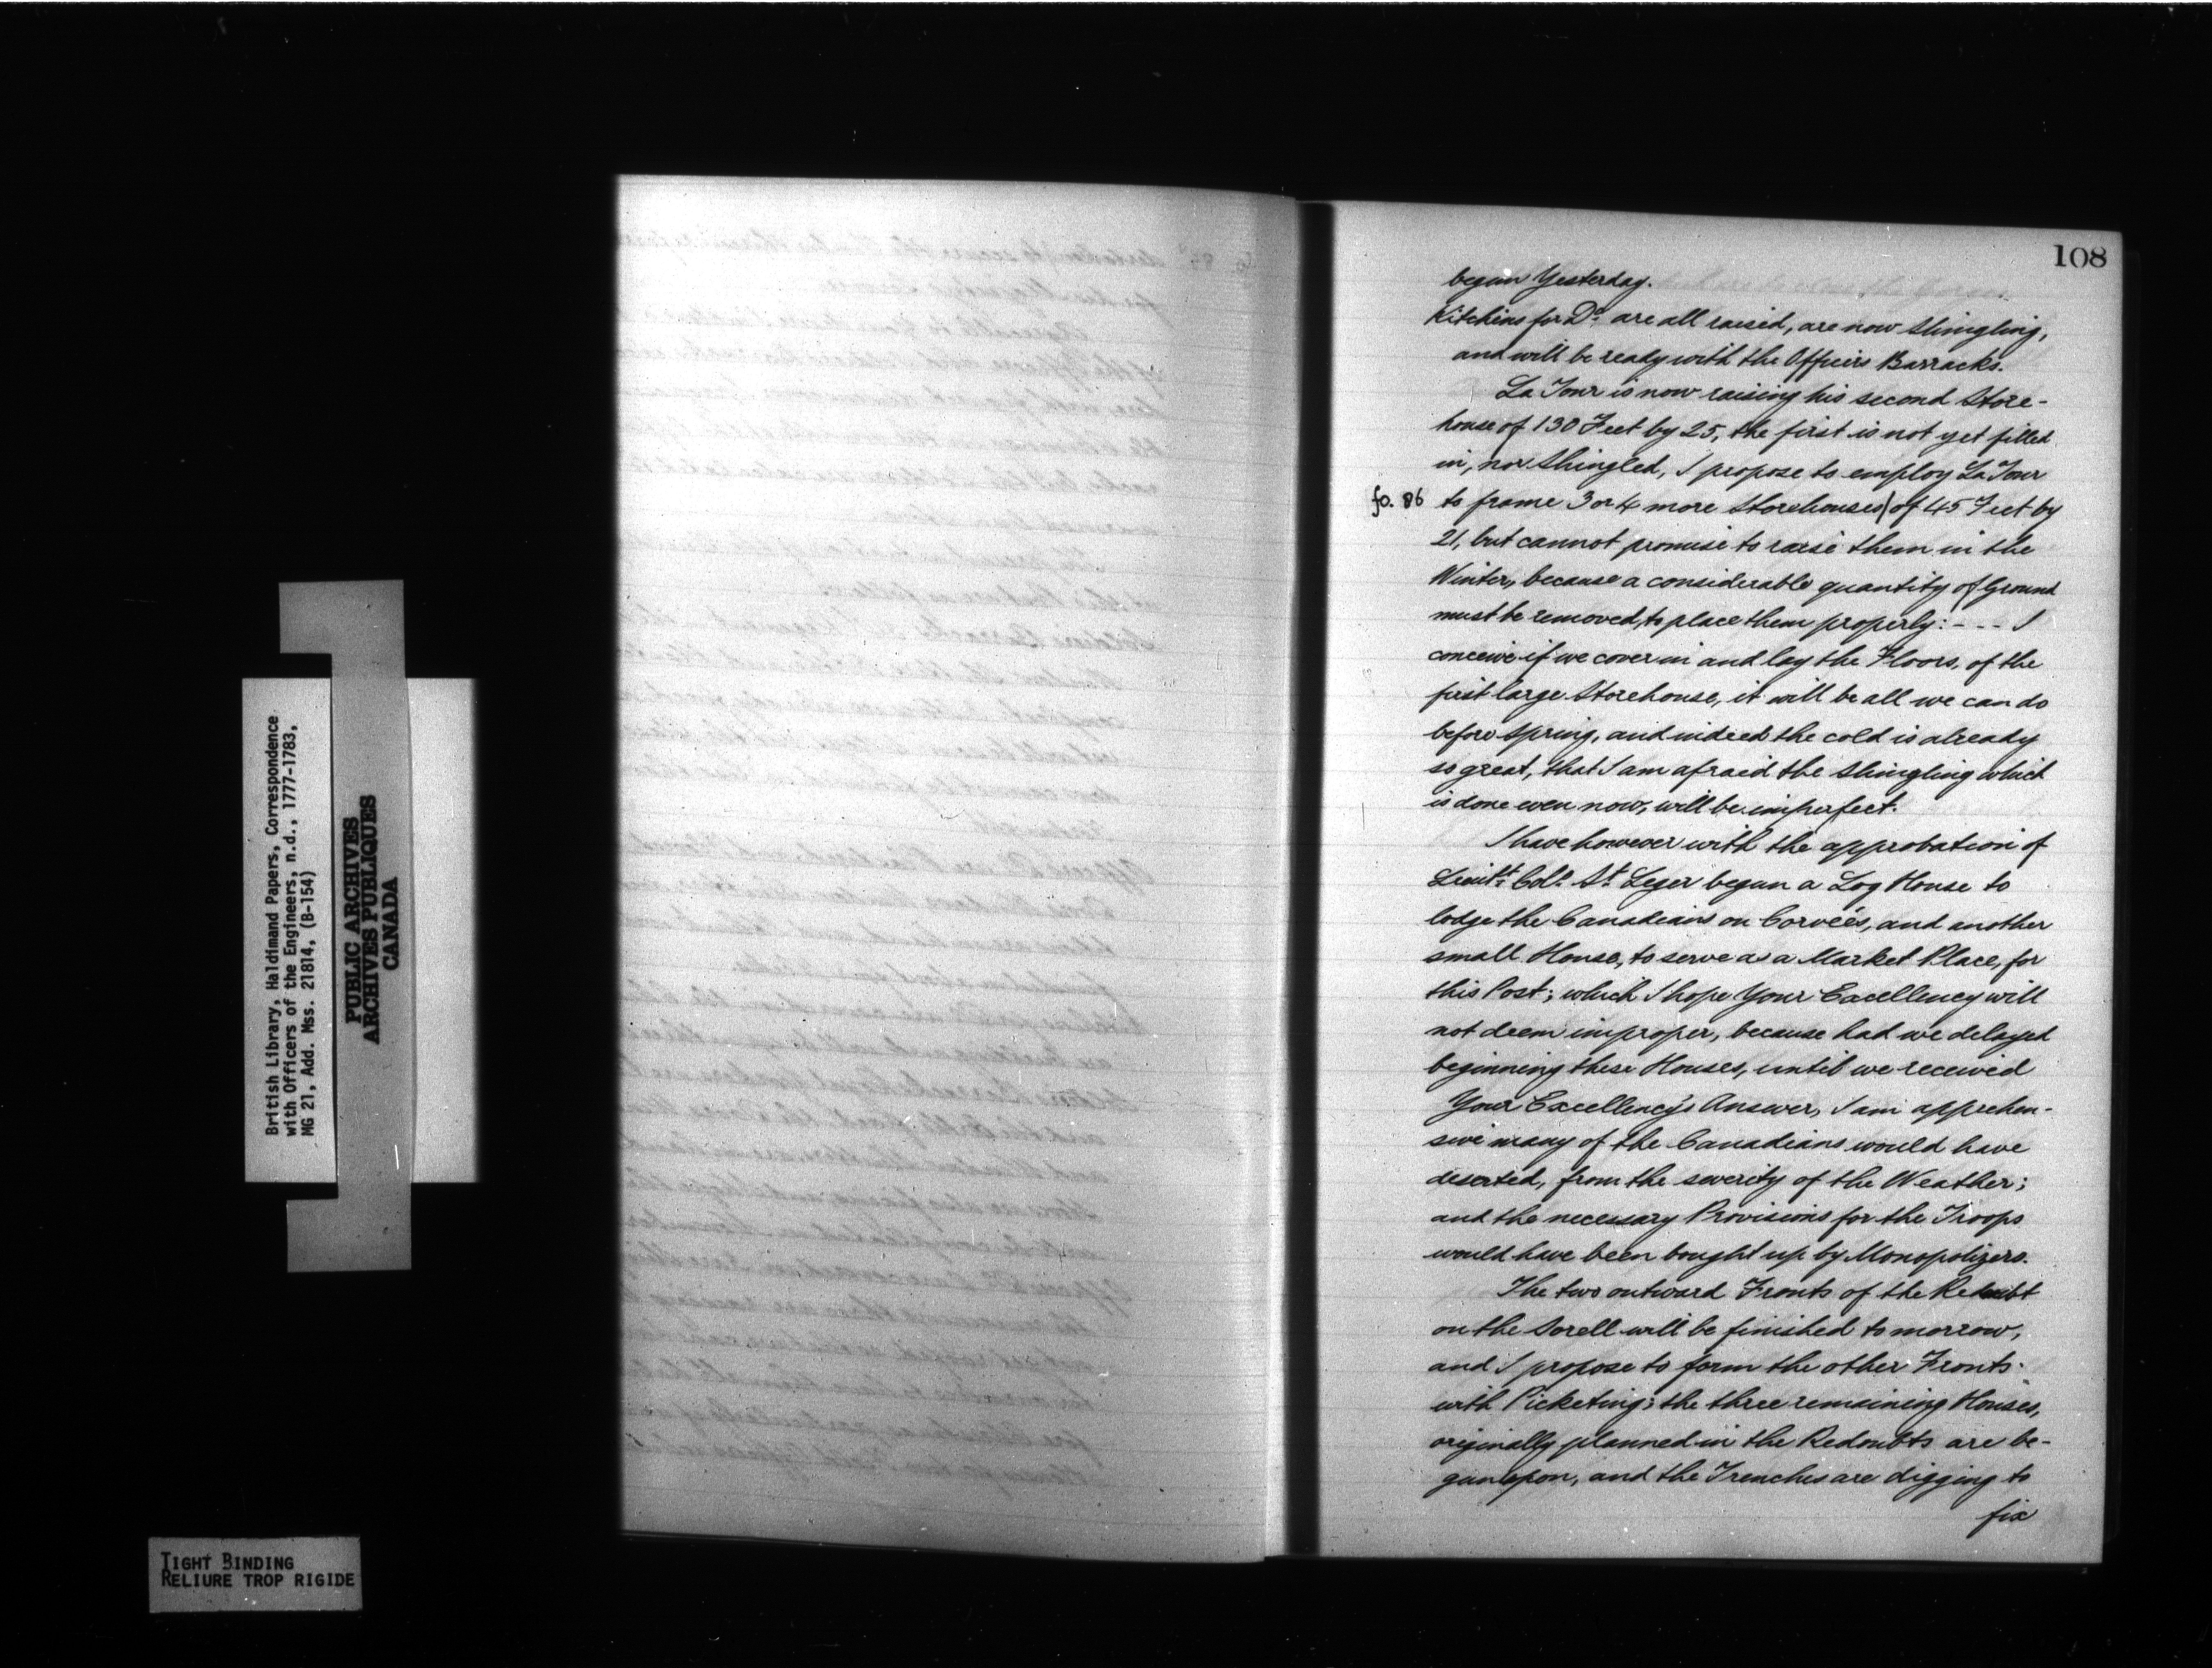 108
begun Yesterday.
Kitchins for Do. are all raised, are now shingling,
and will be ready with the Officers Barracks.
La Tour is now raising his second Store-
house of 130 Feet by 25, the first is not yet filled
in, nor shingled, I propose to employ La Tour
fo. 86 to frame 3 or 4 more Storehouses| of 45 Feet by
21, but cannot promise to raise them in the
Winter, because a considerable quantity of Ground
must be removed, to place them properly: - - - I
conceive if we cover in and lay the Floors, of the
first large Storehouse, it will be all we can do
before Spring, and indeed the cold is already
so great, that I am afraid the shingling which
is done even now, will be imperfect.
I have however with the approbation of
Lieutt. Coll. St. Leger begun a Log House to
lodge the Canadians on Corveés, and another
small House, to serve as a Market Place, for
this Post; which I hope Your Excellency will
not deem improper, because had we delayed
beginning these Houses, until we received
Your Excellency's Answer, I am apprehen-
sive many of the Canadians would have
deserted, from the severity of the Weather;
and the necessary Provisions for the Troops
would have been bought up by Monopolizers.
The two outward Fronts of the Redoubt
on the Sorell will be finished tomorrow,
and I propose to form the other Fronts
with Picketing; the three remaining Houses,
originally planned in the Redoubts are be-
gun upon, and the Trenches are digging to
fix
British Library, Haldimand Papers, Correspondence
with Officers of the Engineers, n.d., 1777-1783,
MG 21, Add. Mss. 21814, (B-154)
PUBLIC ARCHIVES
ARCHIVES PUBLIQUES
CANADA
TIGHT BINDING
RELIURE TROP RIGIDE